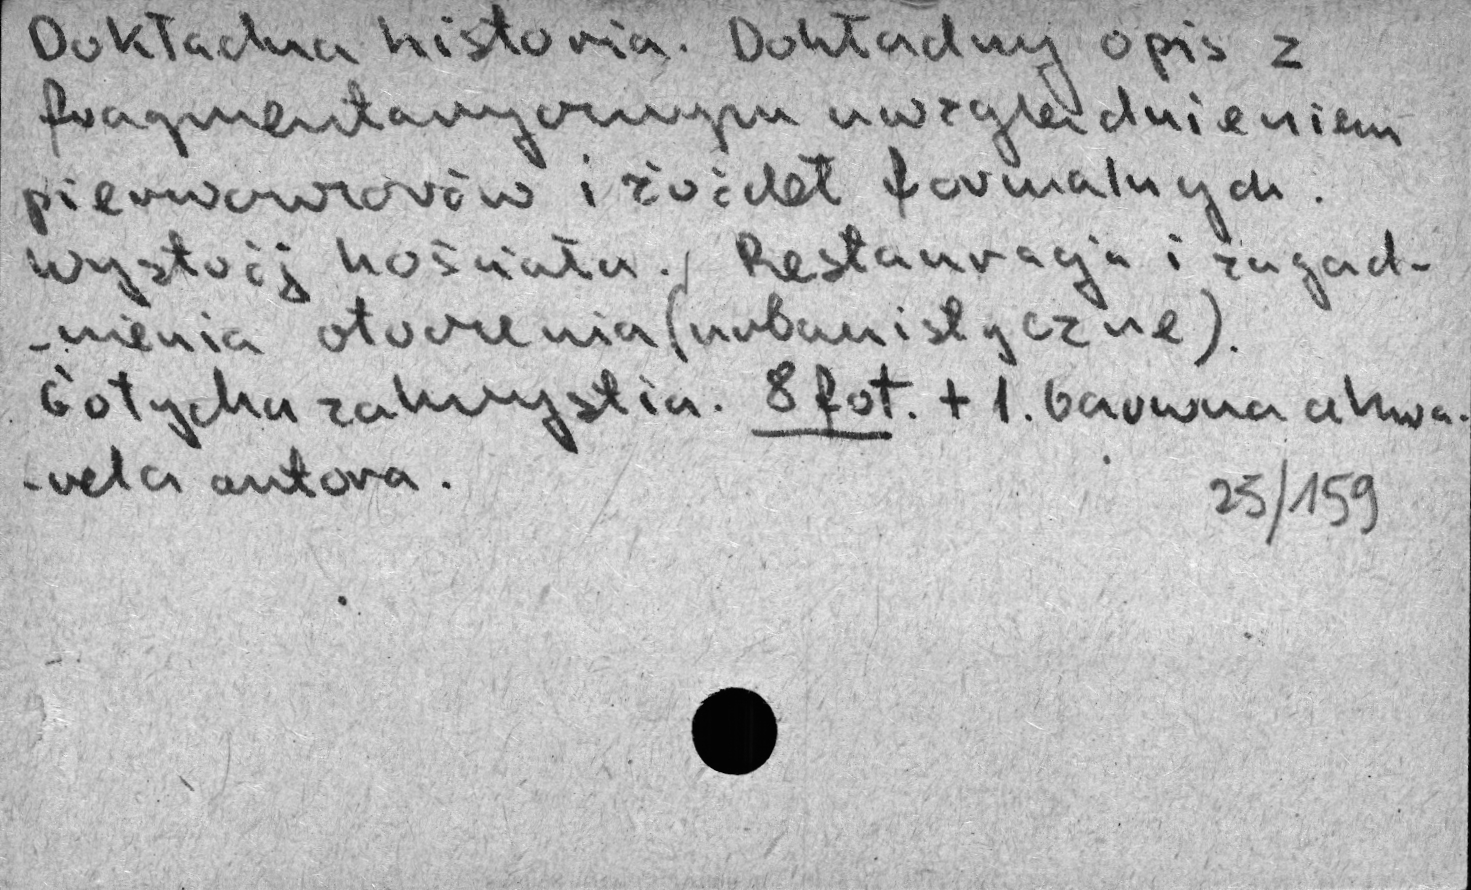 Dokładna historia. Dokładny opis z
fragmentarycznym uwzględnieniem
pierwowzorów i źródeł formalnych.
Wystrój kościoła. Restauracja i zagad-
-nienia otoczenia (urbanistyczne).
Gotycka zakrystia. 8 fot. + 1. barwna akwa-
-rela autora.
25/159